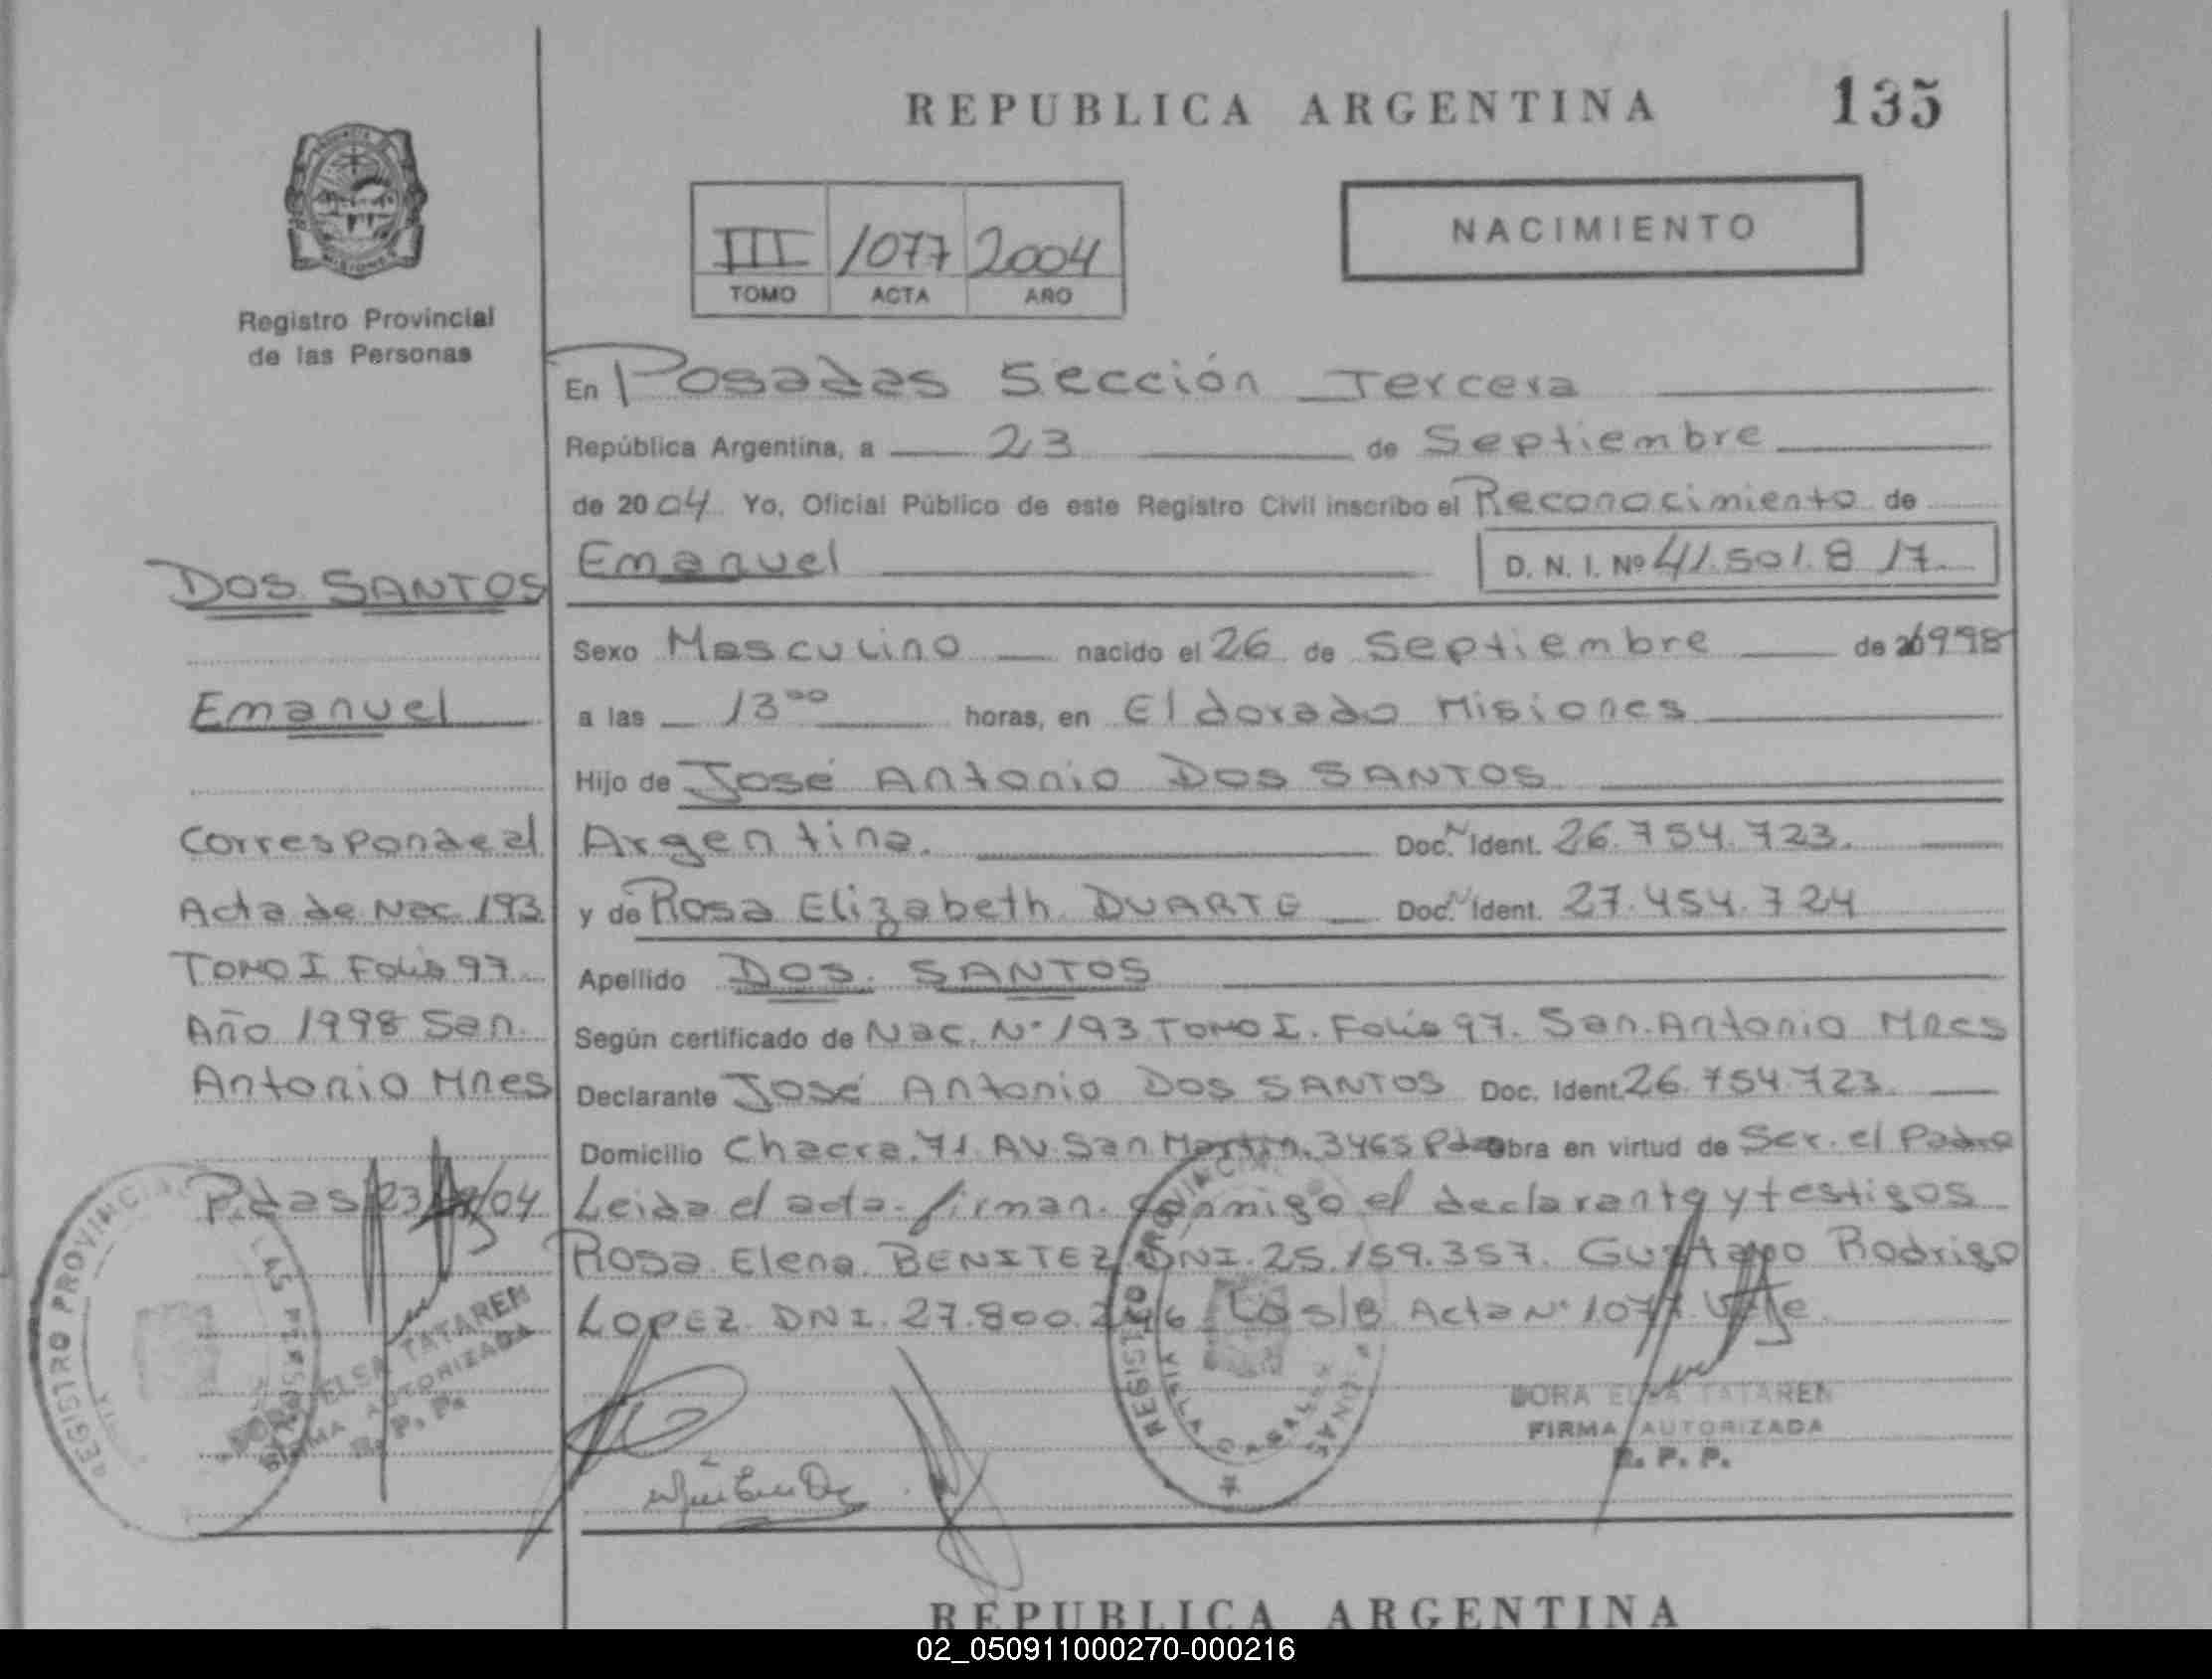 REPUBLICA ARGENTINA 135
NACIMIENTO
III 1077 2004
TOMO ACTA AÑO
Registro Provincial
de las Personas
En Posadas Sección Tercera
República Argentina, a 23 de Septiembre
de 2004 Yo, Oficial Público de este Registro Civil inscribo el Reconocimiento de
Emanuel D. N. I. Nº 41.501.817.
Sexo Masculino nacido el 26 de Septiembre de 1998
a las 13⁰⁰ horas, en Eldorado Misiones
Hijo de José Antonio DOS SANTOS
Argentina. Doc. Ident. 26.754.723.
y de Rosa Elizabeth DUARTE Doc. Ident. 27.454.724
Apellido DOS SANTOS
Según certificado de Nac. Nº 193 TOMO I. Folio 97. San Antonio Mnes
Declarante José Antonio DOS SANTOS Doc. Ident. 26.754.723.
Domicilio Chacra.71. AV. San Martín. 3465 obra en virtud de Ser el Padre
Leida el acta firman conmigo el declarante y testigos
Rosa Elena BENITEZ DNI.25.159.357. Gustavo Rodrigo
LOPEZ DNI.27.800. s/B Acta Nº 1077. Vale.
DORA ELSA TATAREN
FIRMA AUTORIZADA
R. P. P.
DOS SANTOS
Emanuel
Corresponde al
Acta de Nac. 193
TOMO I Folio 97
Año 1998 San
Antonio Mnes
Pdas 23/ /04
REGISTRO PROVINCIAL
DORA ELSA TATAREN
FIRMA AUTORIZADA
R. P. P.
REPUBLICA ARGENTINA
02_050911000270-000216